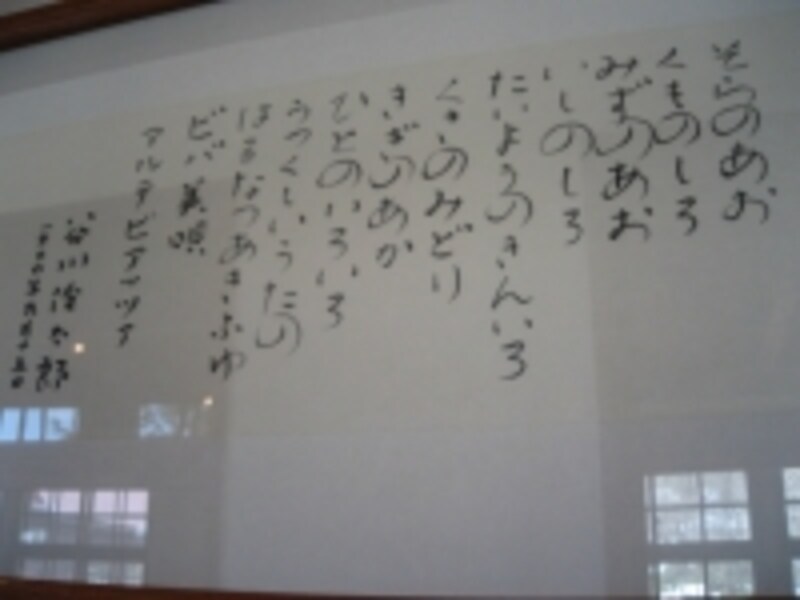 そらのあお
くものしろ
みずのあお
いしのしろ
たいようのきんいろ
くさのみどり
きぎのあか
ひとのいろいろ
うつくしいうたの
はるなつあきふゆ
ビバ美唄
アルテピアッツア
谷川俊太郎